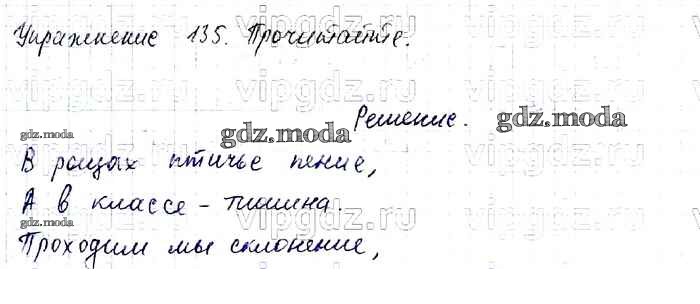 Упражнение 135. Прочитайте.
Решение.
gdz.moda
gdz.moda
В рощах птичье пение,
gdz.moda
А в классе - тишина.
gdz.moda
Проходим мы склонение,
vipgdz.ru
vipgdz.ru
vipgdz.ru
vipgdz.ru